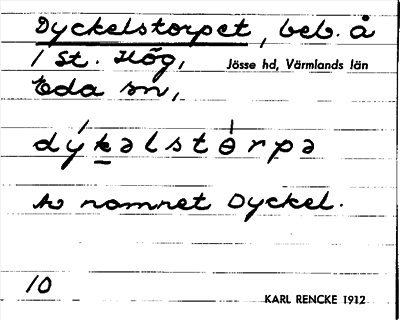 Dyckelstorpet, beb. å
1 St. Hög, Jösse hd, Värmlands län
Eda sn,
dýk̲əlstɵ́rpə
Av namnet Dyckel.
10 KARL RENCKE 1912